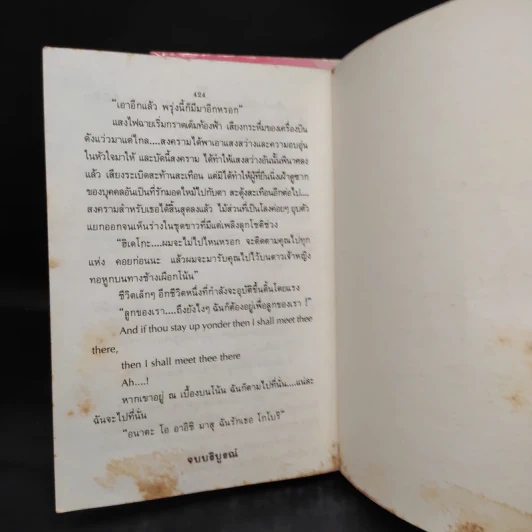 424
"เอาอีกแล้ว พรุ่งนี้ก็มีมาอีกหรอก"
แสงไฟฉายเริ่มกราดเต็มท้องฟ้า เสียงกระหึ่มของเครื่องบิน
ดังแว่วมาแต่ไกล....สงครามได้พาเอาแสงสว่างและความอบอุ่น
ในหัวใจมาให้ และบัดนี้สงคราม ได้ทำให้แสงสว่างอันนั้นพินาศลง
แล้ว เสียงระเบิดสะท้านสะเทือน แต่มิได้ทำให้ผู้ที่ยืนนิ่งเฝ้าดูซาก
ของบุคคลอันเป็นที่รักมอดไหม้ไปกับตา สะดุ้งสะเทือนอีกต่อไป....
สงครามสำหรับเธอได้สิ้นสุดลงแล้ว ไม้ส่วนที่เป็นโลงค่อยๆ ยุบตัว
แยกออกจนเห็นร่างในชุดขาวที่มีแต่เพลิงลุกโชติช่วง
"ฮิเดโกะ....ผมจะไม่ไปไหนหรอก จะติดตามคุณไปทุก
แห่ง คอยก่อนนะ แล้วผมจะมารับคุณไปไว้บนดาวเจ้าหญิง
ทอหูกบนทางช้างเผือกโน้น"
ชีวิตเล็กๆ อีกชีวิตหนึ่งที่กำลังจะอุบัติขึ้นดิ้นโดยแรง
"ลูกของเรา....ถึงยังไงๆ ฉันก็ต้องอยู่เพื่อลูกของเรา !"
And if thou stay up yonder then I shall meet thee
there,
then I shall meet thee there
Ah....!
หากเขาอยู่ ณ เบื้องบนโน้น ฉันก็ตามไปที่นั่น....แน่ละ
ฉันจะไปที่นั่น
"อนาตะ โอ อาอิชิ มาสุ ฉันรักเธอ โกโบริ"
จบบริบูรณ์